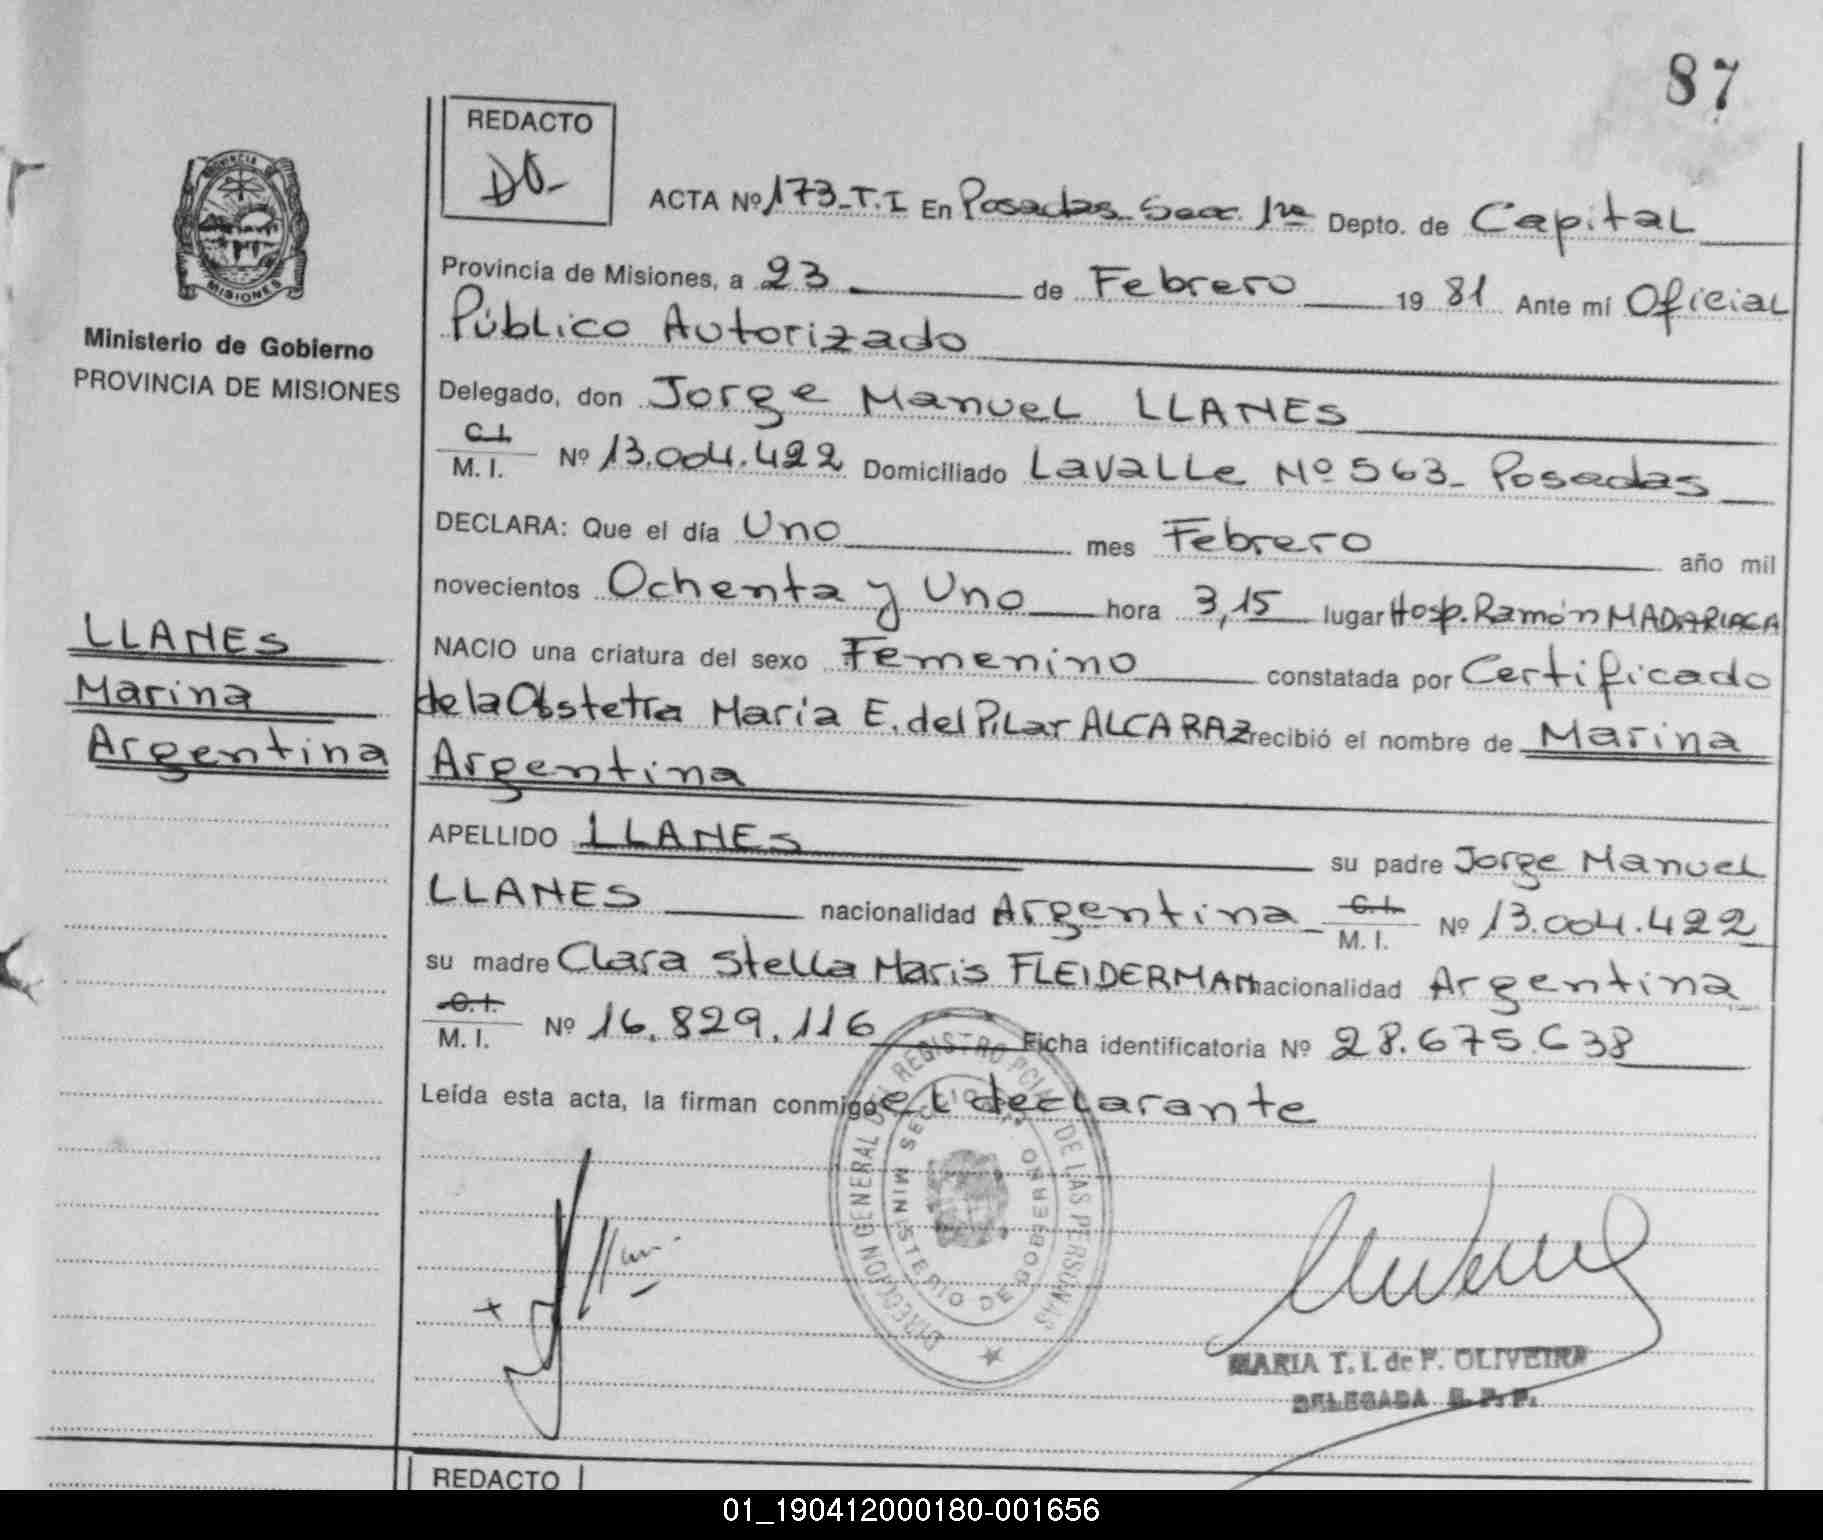 87
REDACTO
PROVINCIA
MISIONES
Ministerio de Gobierno
PROVINCIA DE MISIONES
ACTA Nº 173-T.I En Posadas Secc. 1ra Depto. de Capital
Provincia de Misiones, a 23 de Febrero 19 81 Ante mí Oficial
Público Autorizado
Delegado, don Jorge Manuel LLANES
C.I.
M. I. Nº 13.004.422 Domiciliado Lavalle Nº 563- Posadas
DECLARA: Que el día Uno mes Febrero año mil
novecientos Ochenta y Uno hora 3,15 lugar Hosp. Ramón MADARIAGA
NACIO una criatura del sexo Femenino constatada por Certificado
de la Obstetra María E. del Pilar ALCARAZ recibió el nombre de Marina
Argentina
LLANES
Marina
Argentina
APELLIDO LLANES su padre Jorge Manuel
LLANES nacionalidad Argentina C.I. M. I. Nº 13.004.422
su madre Clara Stella Maris FLEIDERMAN nacionalidad Argentina
C.I.
M. I. Nº 16.829.116 Ficha identificatoria Nº 28.675.638
Leída esta acta, la firman conmigo el declarante
DIRECCION GENERAL DEL REGISTRO PCIAL DE LAS PERSONAS
MINISTERIO DE GOBIERNO
MARIA T. I. de F. OLIVEIRA
DELEGADA R. P. P.
REDACTO
01_190412000180-001656